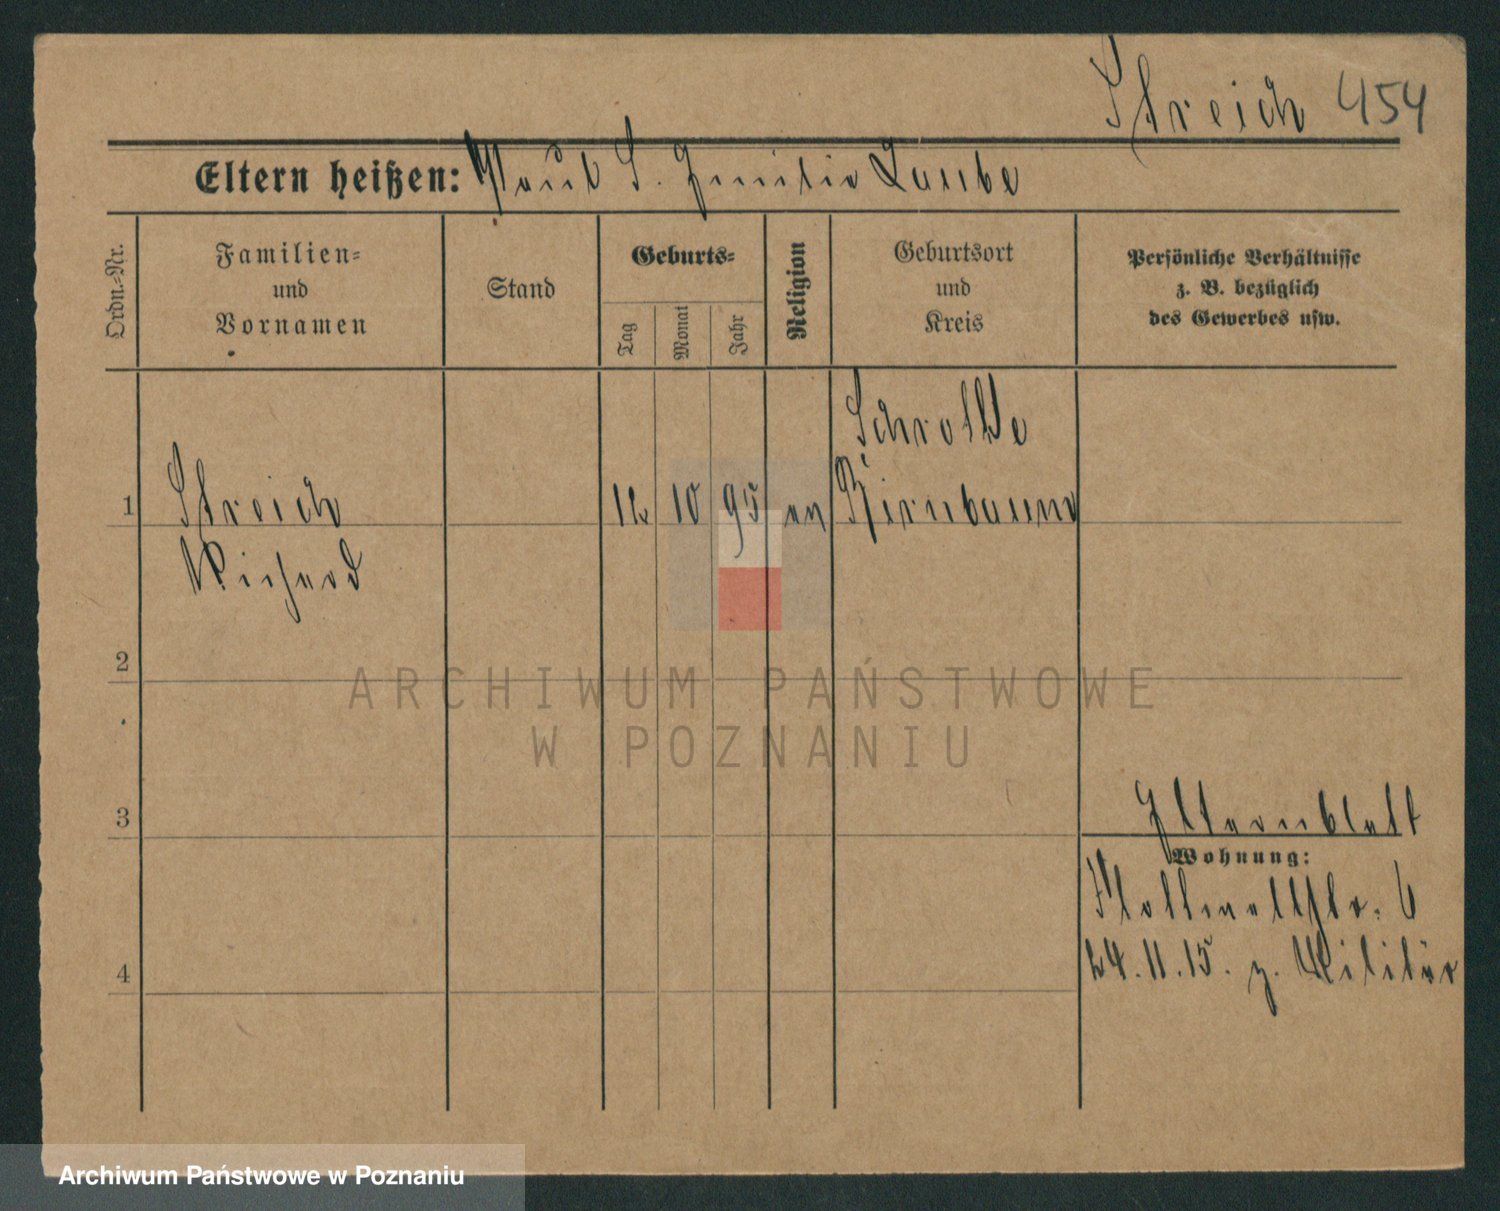 Streich 454
Eltern heißen: Paul S. Emilie Laube
Ordn.-Nr.
Familien-
und
Vornamen
Stand
Geburts-
Tag
Monat
Jahr
Religion
Geburtsort
und
Kreis
Persönliche Verhältnisse
z. B. bezüglich
des Gewerbes usw.
1
Streich
Richard
12 10 95 ev
Birnbaum
2
3
4
Elternblatt
Wohnung:
6
24.11.15. z. Militär
ARCHIWUM PAŃSTWOWE
W POZNANIU
Archiwum Państwowe w Poznaniu